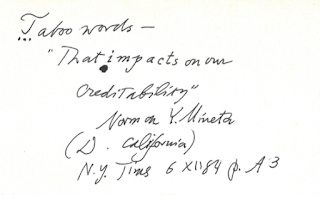 Taboo words —
"That impacts on our
creditability"
Norman Y. Mineta
(D. California)
N.Y. Times 6 XII 84 p. A 3